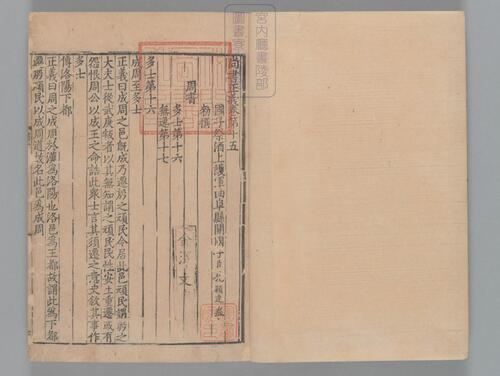 尚書正義卷第十五
國子祭酒上護軍曲阜縣開國子臣孔穎達奉
勑撰
周書
多士第十六
無逸第十七
多士第十六
成周至多士
正義曰成周之邑旣成乃遷殷之頑民令居此邑頑民謂殷之
大夫士從武庚叛者以其無知謂之頑民民性安土重遷或有
怨恨周公以成王之命誥此眾士言其須遷之意史敘其事作
多士
傳洛陽下都
正義曰周之成周於漢為洛陽也洛邑為王都故謂此為下都
遷殷頑民以成周道故名此邑為成周
宮内廳書陵部
圖書寮
金澤文